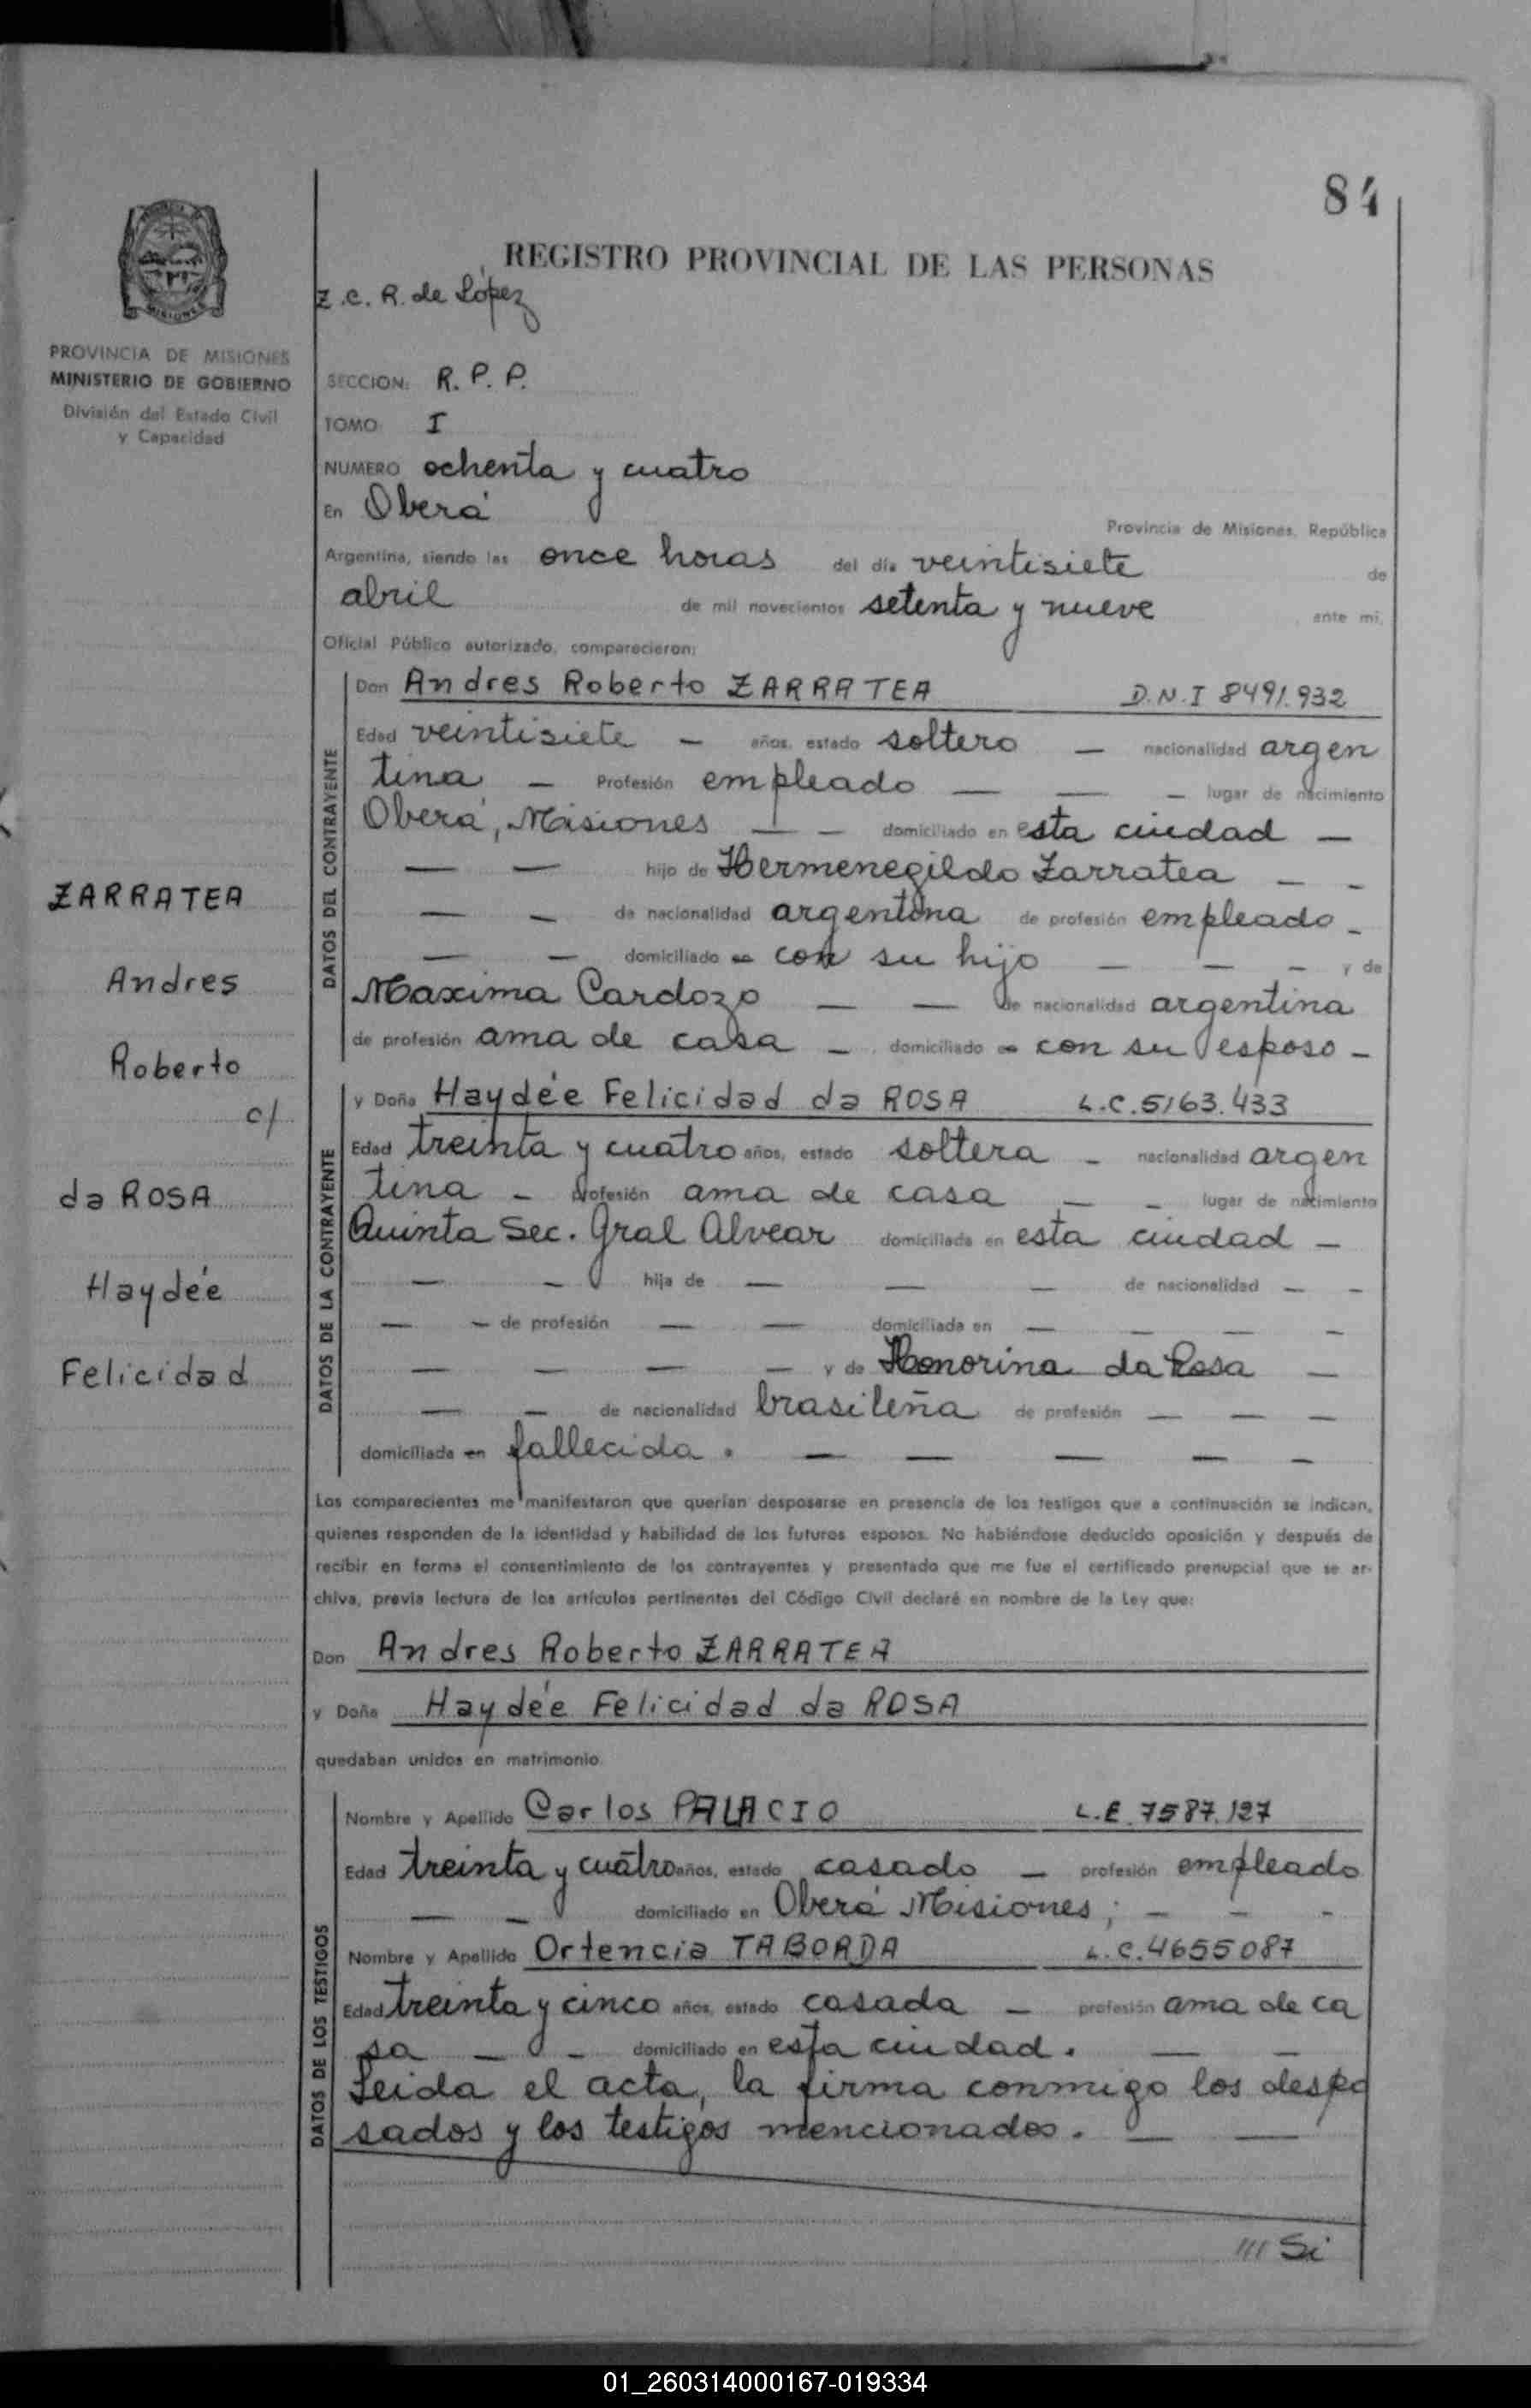 84
REGISTRO PROVINCIAL DE LAS PERSONAS
Z.C.R. de López
PROVINCIA DE MISIONES
MINISTERIO DE GOBIERNO
División del Estado Civil
y Capacidad
SECCION: R. P. P.
TOMO I
NUMERO ochenta y cuatro
En Oberá
Provincia de Misiones, República
Argentina, siendo las once horas del día veintisiete de
abril de mil novecientos setenta y nueve ante mi,
Oficial Público autorizado, comparecieron:
DATOS DEL CONTRAYENTE
Don Andres Roberto ZARRATEA D.N.I 8491.932
Edad veintisiete — años, estado soltero — nacionalidad argen
tina — Profesión empleado — — — lugar de nacimiento
Oberá, Misiones — — domiciliado en esta ciudad —
— — hijo de Hermenegildo Zarratea — —
— — de nacionalidad argentina de profesión empleado —
— — domiciliado en con su hijo — — — y de
Maxima Cardozo — — de nacionalidad argentina
de profesión ama de casa — domiciliado en con su esposo —
ZARRATEA
Andres
Roberto
c/
da ROSA
Haydée
Felicidad
DATOS DE LA CONTRAYENTE
y Doña Haydée Felicidad da ROSA L.C.5163.433
Edad treinta y cuatro años, estado soltera — nacionalidad argen
tina — profesión ama de casa — — lugar de nacimiento
Quinta Sec. Gral Alvear domiciliada en esta ciudad —
— — hija de — — — de nacionalidad — —
— — de profesión — — domiciliada en — — — —
— — — — y de Honorina da Rosa —
— — de nacionalidad brasileña de profesión — — —
domiciliada en fallecida . — — — — —
Los comparecientes me manifestaron que querían desposarse en presencia de los testigos que a continuación se indican,
quienes responden de la identidad y habilidad de los futuros esposos. No habiéndose deducido oposición y después de
recibir en forma el consentimiento de los contrayentes y presentado que me fue el certificado prenupcial que se ar-
chiva, previa lectura de los artículos pertinentes del Código Civil declaré en nombre de la Ley que:
Don Andres Roberto ZARRATEA
y Doña Haydée Felicidad da ROSA
quedaban unidos en matrimonio
DATOS DE LOS TESTIGOS
Nombre y Apellido Carlos PALACIO L.E. 7587.127
Edad treinta y cuatro años, estado casado — profesión empleado
— — domiciliado en Oberá Misiones; — — -
Nombre y Apellido Ortencia TABORDA L.C.4655087
Edad treinta y cinco años, estado casada — profesión ama de ca
sa — — domiciliado en esta ciudad. — —
Leida el acta, la firma conmigo los despo
sados y los testigos mencionados. — —
/// Si
01_260314000167-019334